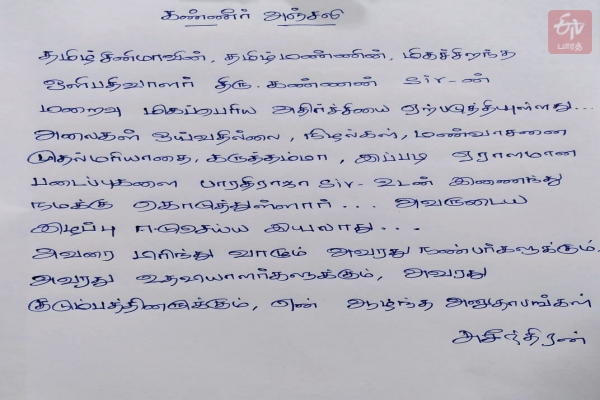 கண்ணீர் அஞ்சலி
தமிழ்சினிமாவின், தமிழ்மண்ணின், மிகச்சிறந்த
ஒளிபதிவாளர் திரு. கண்ணன் Sir-ன்
மறைவு மிகப்பெரிய அதிர்ச்சியை ஏற்படுத்தியுள்ளது...
அலைகள் ஓய்வதில்லை, நிழல்கள், மண்வாசனை
முதல்மரியாதை, கருத்தம்மா, இப்படி ஏராளமான
படைப்புகளை பாரதிராஜா Sir- உடன் இணைந்து
நமக்கு கொடுத்துள்ளார்... அவருடைய
இழப்பு ஈடுசெய்ய இயலாது...
அவரை பிரிந்து வாடும் அவரது நண்பர்களுக்கும்,
அவரது உதவியாளர்களுக்கும், அவரது
குடும்பத்தினருக்கும், என் ஆழ்ந்த அனுதாபங்கள்
சுசீந்திரன்
ETV
பாரத்